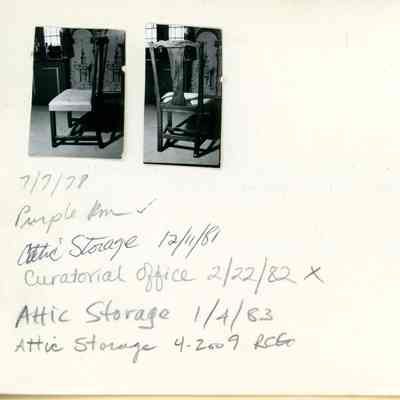 7/7/78
Purple Rm ✓
Attic Storage 12/11/81
Curatorial Office 2/22/82 X
Attic Storage 1/4/83
Attic Storage 4-2009